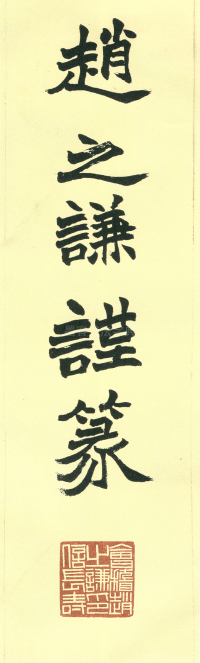 趙之謙謹篆
會稽趙
之謙印
信長壽